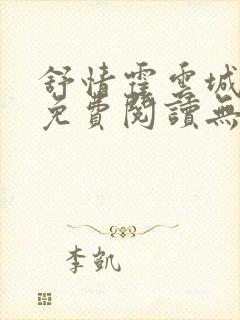 舒情霍雲城
免費閱讀無
李凱